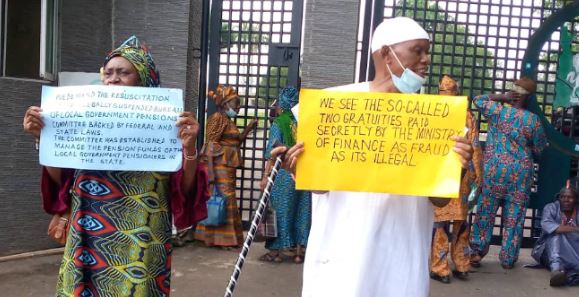 WE DEMAND THE RESUSCITATION
ILLEGALLY SUSPENDED BUREAU
OF LOCAL GOVERNMENT PENSIONS
COMMITTEE BACKED BY FEDERAL AND
STATE LAWS.
THE COMMITTEE WAS ESTABLISHED TO
MANAGE THE PENSION FUNDS OF
LOCAL GOVERNMENT PENSIONEERS IN
THE STATE.
WE SEE THE SO-CALLED
TWO GRATUITIES PAID
SECRETLY BY THE MINISTRY
OF FINANCE AS FRAUD
AS ITS ILLEGAL